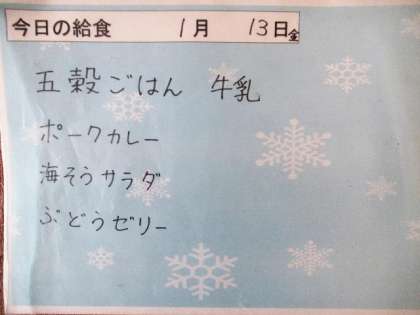 今日の給食 1月 13日金
五穀ごはん 牛乳
ポークカレー
海そうサラダ
ぶどうゼリー